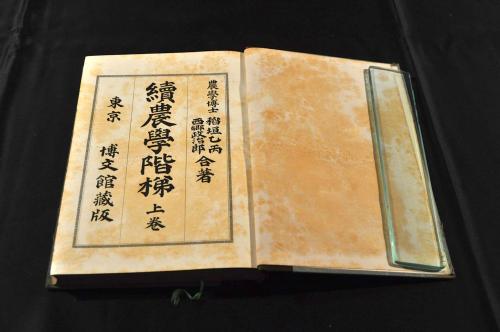 農學博士 稻垣乙丙
西鄉政治郎 合著
續農學階梯 上卷
東京 博文館藏版